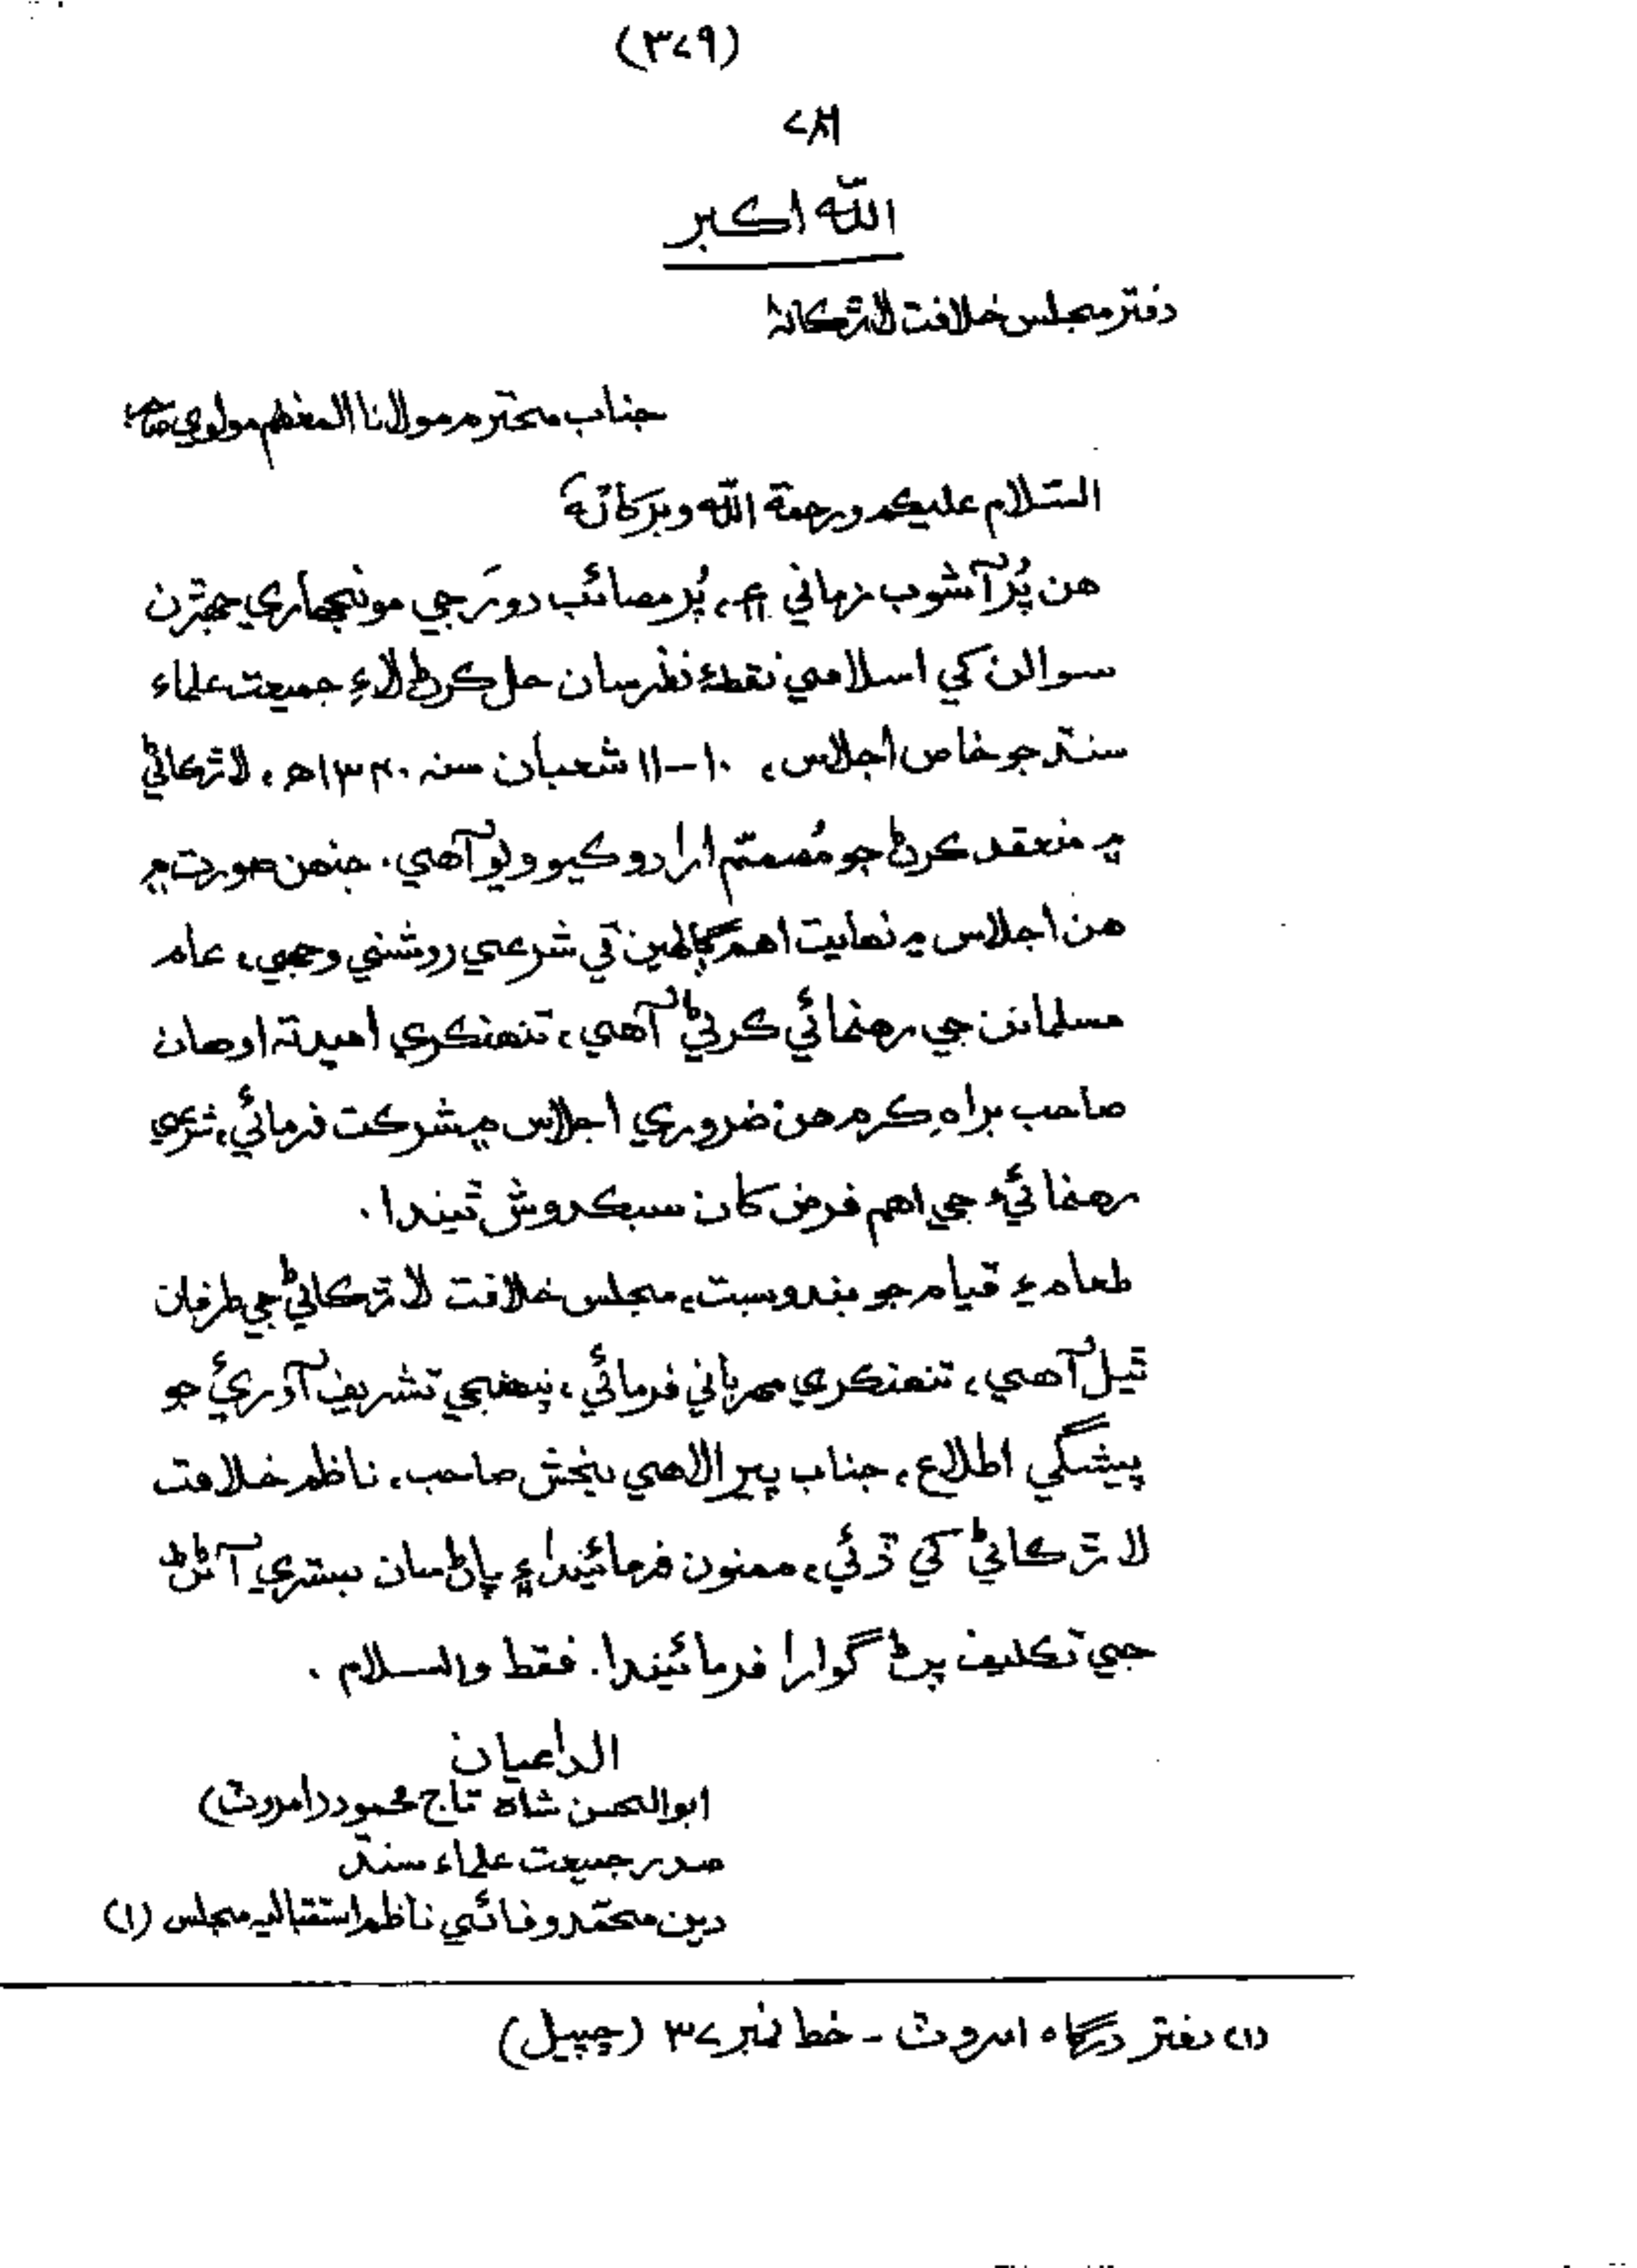 (۳۷۹)
۷۸۶
الله اڪبر
دفتر مجلس خلافت لاڙڪاڻہ
جناب محترم مولانا المعظم مولوي صاحب
السّلام عليڪم ورحمة الله وبرڪاتهٗ
هن پُر آشوب زماني ۾، پُر مصائب دورَ جي مونجهاري جهڙن
سوالن کي اسلامي نقطۂ نظر سان حل ڪرڻ لاءِ جميعت علماء
سنڌ جو خاص اجلاس، ۱۰-۱۱ شعبان سنہ ۱۳۴۰ھ، لاڙڪاڻي
۾ منعقد ڪرڻ جو مُصمّم ارادو ڪيو ويو آهي. جنهن صورت ۾
هن اجلاس ۾ نهايت اهم ڳالهين تي شرعي روشني وجهي، عام
مسلمانن جي رهنمائي ڪرڻي آهي، تنهنڪري اميد تہ اوهان
صاحب براہِ ڪرم هن ضروري اجلاس ۾ شرڪت فرمائي، شرعي
رهنمائيءَ جي اهم فرض کان سبڪدوش ٿيندا.
طعام ۽ قيام جو بندوبست، مجلس خلافت لاڙڪاڻي جي طرفان
ٿيل آهي، تنهنڪري مهرباني فرمائي، پنهنجي تشريف آوريءَ جو
پيشگي اطلاع، جناب پير الاهي بخش صاحب، ناظم خلافت
لاڙڪاڻي کي ڏئي، ممنون فرمائيندا ۽ پاڻ سان بسترو آڻڻ
جي تڪليف پڻ گوارا فرمائيندا. فقط والسلام.
الداعيان
ابوالحسن شاہ تاج محمود (امروٽ)
صدر جميعت علماء سنڌ
دين محمّد وفائي ناظم استقباليہ مجلس (۱)
(۱) دفتر درگاہ امروٽ - خط نمبر ۳۷ (ڇپيل)